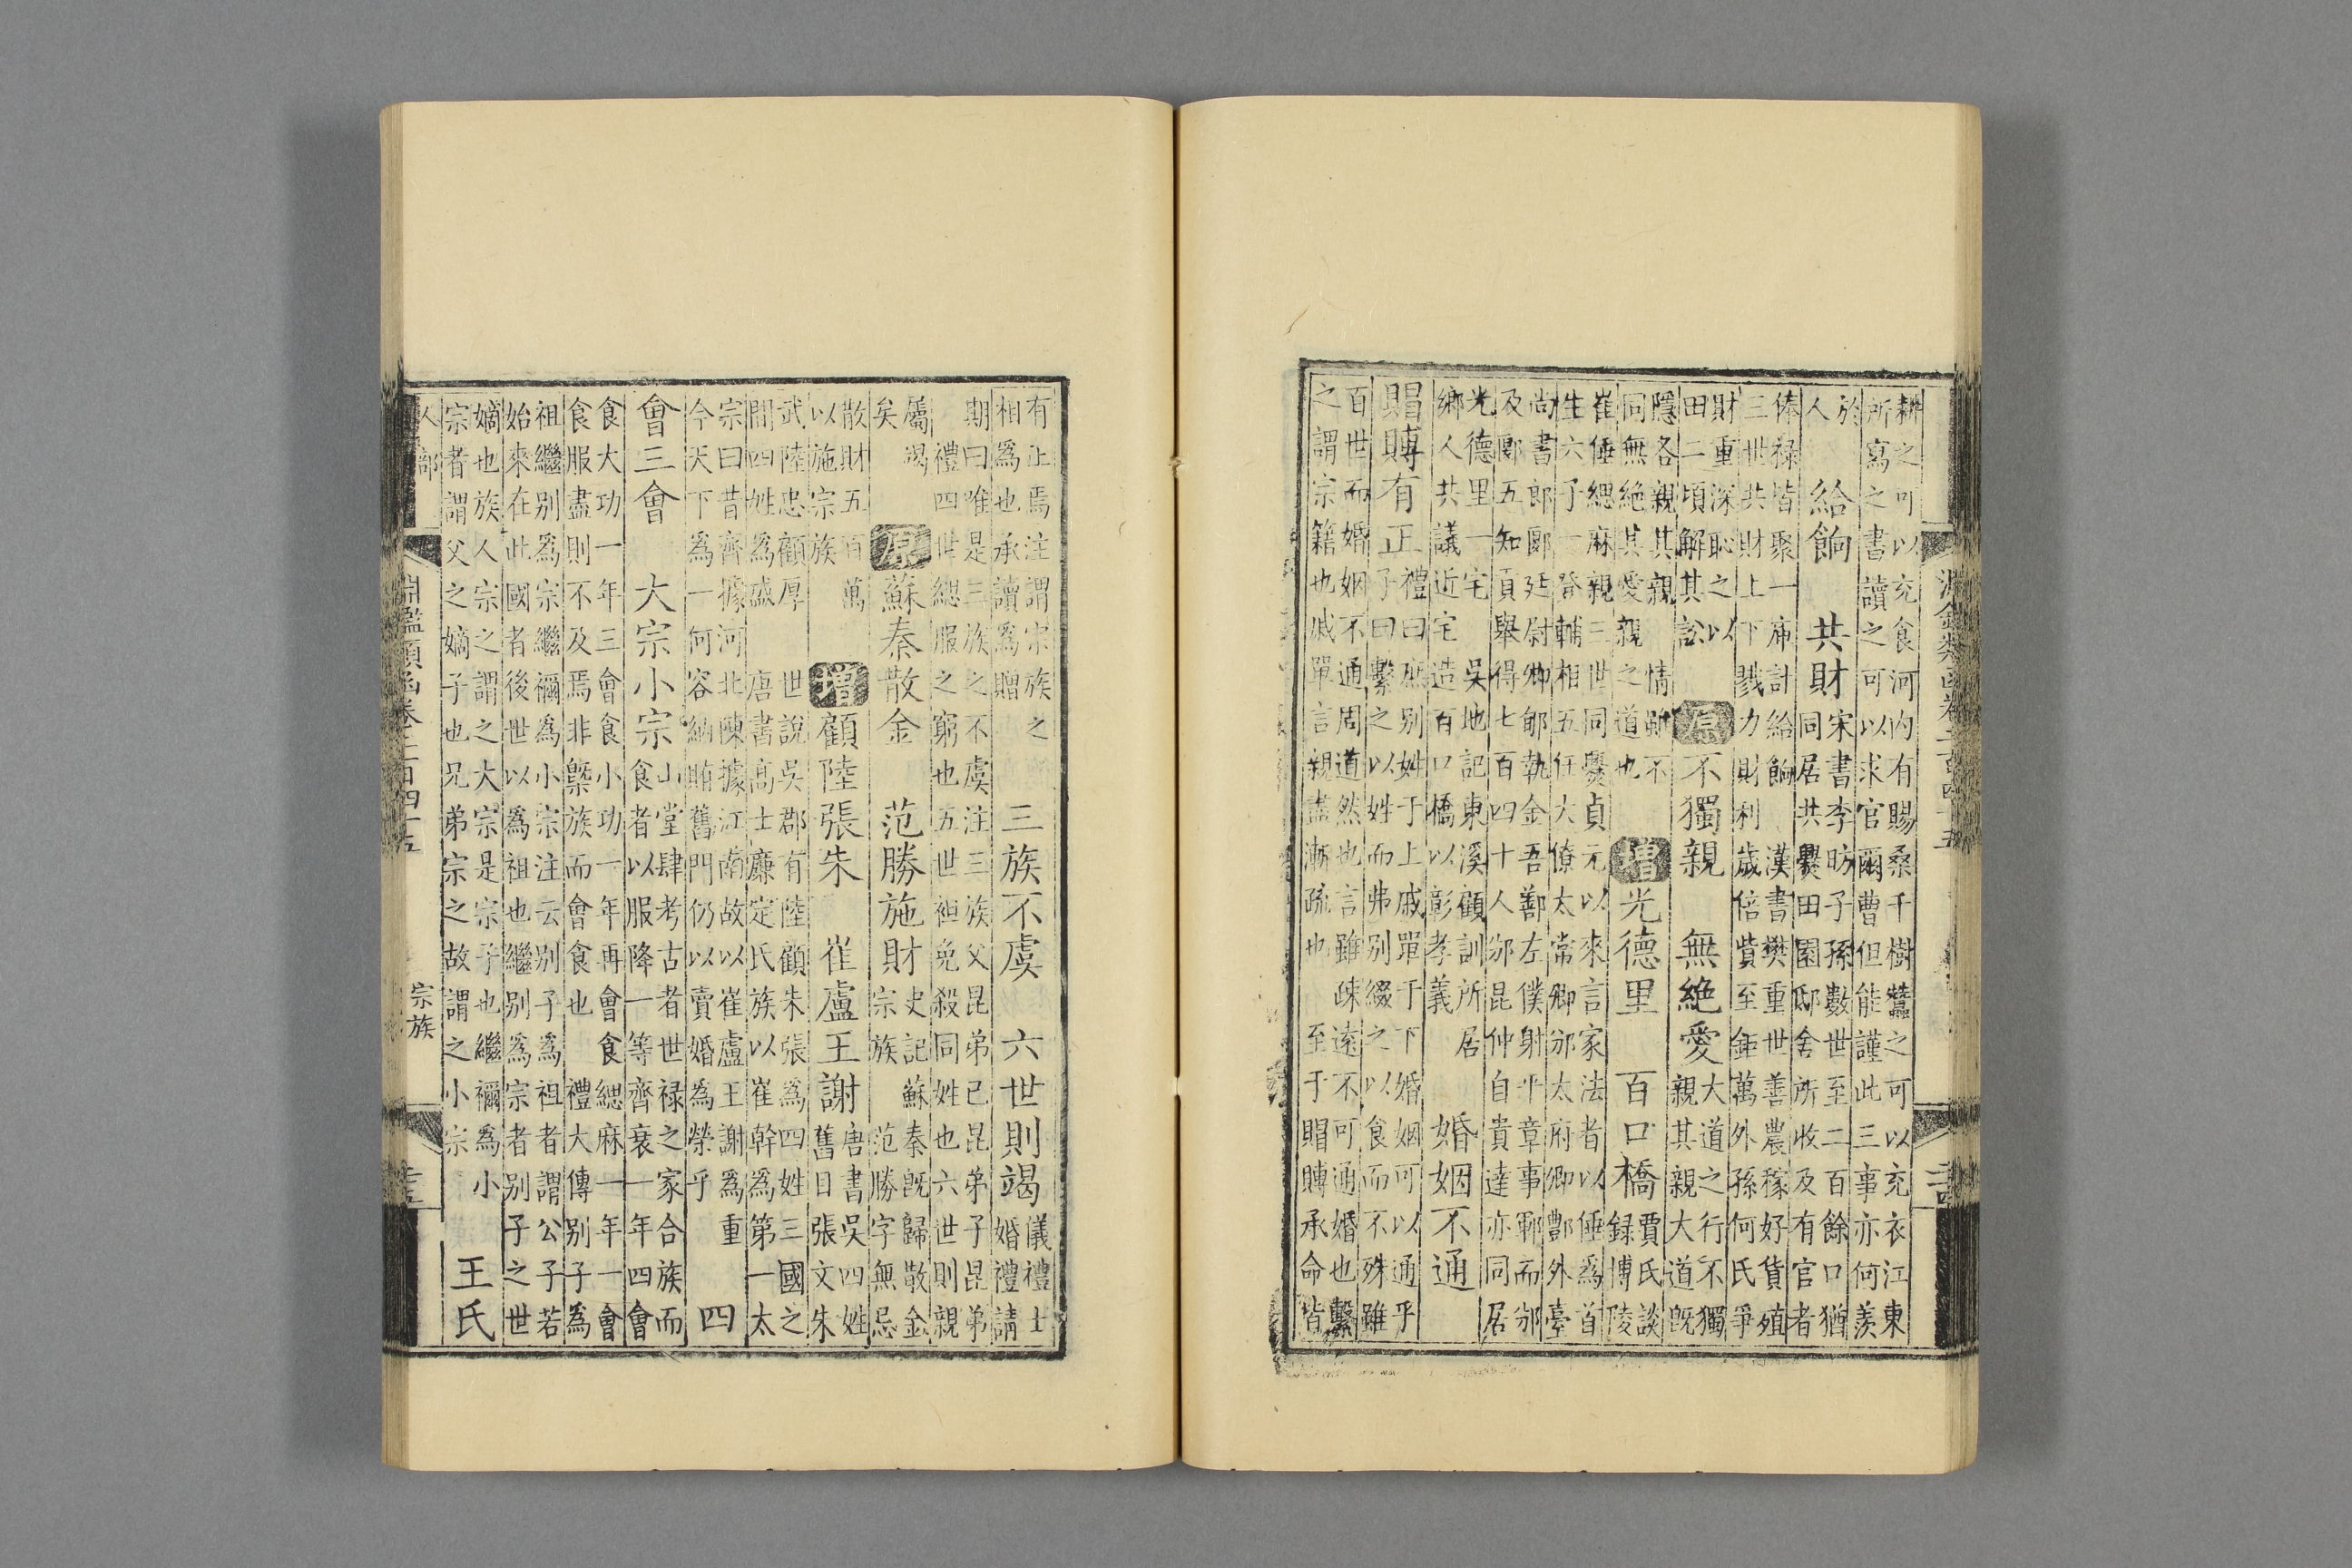 耕之可以充食河內有賜桑千樹蠶之可以充衣江東
所寫之書讀之可以求官爾曹但能謹此三事亦何羨
於
人
給餉
共財
宋書李昉子孫數世至二百餘口猶
同居共爨田園邸舍所收及有官者
俸祿皆聚一庫計給餉
漢書樊重世善農稼好貨殖
三世共財上下戮力財利歲倍貲至鉅萬外孫何氏爭
財重深恥之以
田二頃解其訟
原
不獨親
無絕愛
大道之行不獨
親其親大道既
隱各親其親
同無絕其愛親之道也
情雖不
增
光德里
百口橋
賈氏談
錄博陵
崔倕緦麻親三世同爨貞元以來言家法者以倕為首
生六子一登輔相五任大僚太常卿邠太府卿酆外臺
尚書郎郾廷尉卿郇執金吾鄯左僕射平章事鄲而邠
及郾五知貢舉得七百四十人邠昆仲自貴達亦同居
光德里一宅
吳地記東溪顧訓所居
鄉人共議近宅造百口橋以彰孝義
婚姻不通
賵賻有正
禮曰庶別姓于上戚單于下婚姻可以通乎
子曰繫之以姓而弗別綴之以食而不殊雖
百世而婚姻不通周道然也言雖疎遠不可通婚也繫
之謂宗籍也戚單言親盡漸疏也
至于賵賻承命皆
有正焉注謂宗族之
相為也承讀為贈
三族不虞
六世則竭
儀禮士
婚禮請
期曰唯是三族之不虞注三族父昆弟己昆弟子昆弟
禮四世緦服之窮也五世袒免殺同姓也六世則親
屬竭
矣
原
蘇秦散金
范勝施財
史記蘇秦既歸散金
宗族
范勝字無忌
散財五百萬
以施宗族
增
顧陸張朱
崔盧王謝
唐書吳四姓
舊日張文朱
武陸忠顧厚
世說吳郡有陸顧朱張為四姓三國之
間四姓為盛
唐書高士廉定氏族以崔幹為第一太
宗曰昔齊據河北陳據江南故以崔盧王謝為重
今天下為一何容納賄舊門仍以賣婚為榮乎
四
會三會
大宗小宗
山堂肆考古者世祿之家合族而
食者以服降一等齊衰一年四會
食大功一年三會食小功一年再會食緦麻一年一會
食服盡則不及焉非槩族而會食也
禮大傳別子為
祖繼別為宗繼禰為小宗注云別子為祖者謂公子若
始來在此國者後世以為祖也繼別為宗者別子之世
嫡也族人宗之謂之大宗是宗子也繼禰為小
宗者謂父之嫡子也兄弟宗之故謂之小宗
王氏
人部
淵鑑類函卷二百四十五
宗族